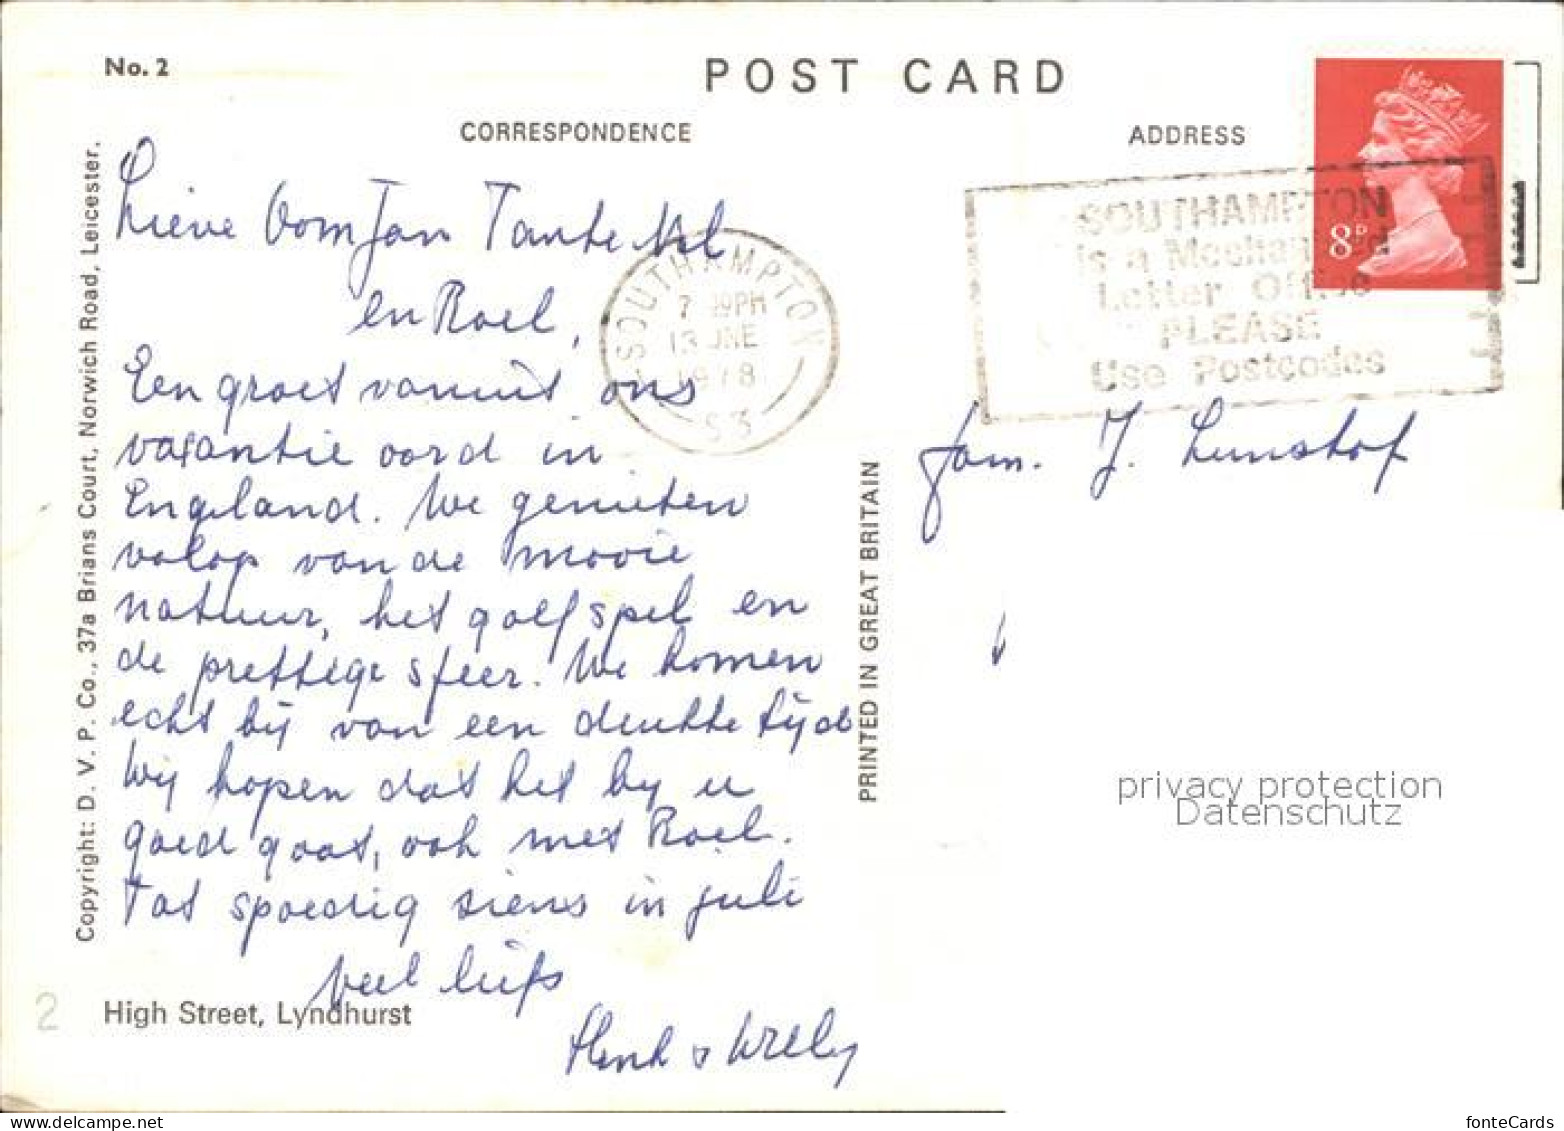 No. 2
POST CARD
CORRESPONDENCE
ADDRESS
Lieve Oom Jan Tante Nel
en Roel,
Een groet vanuit ons
vakantie oord in
Engeland. We genieten
volop van de mooie
natuur, het golfspel en
de prettige sfeer. We komen
echt bij van een drukke tijd
Wij hopen dat het by u
goed gaat, ook met Roel.
Tot spoedig ziens in juli
veel liefs
Henk & Willy
High Street, Lyndhurst
2
Copyright: D. V. P. Co., 37a Brians Court, Norwich Road, Leicester.
PRINTED IN GREAT BRITAIN
SOUTHAMPTON
13 JNE
1978
S3
8P
SOUTHAMPTON
is a Mechanised
Letter Office
PLEASE
Use Postcodes
Fam. J. Lunshof
privacy protection
Datenschutz
fonteCards